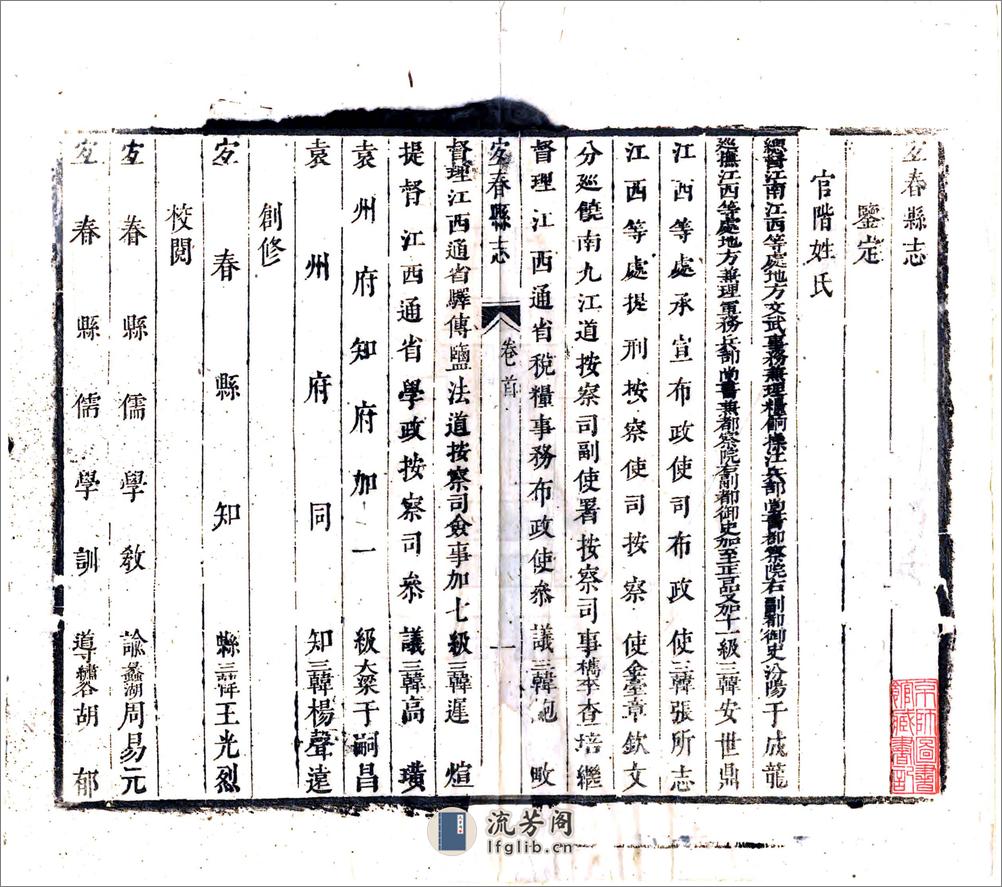 宜春縣志
鑒定
官階姓氏
總督江南江西等處地方文武事務兼理糧餉操江兵部尚書都察院右副都御史汾陽于成龍
巡撫江西等處地方兼理軍務兵部尚書兼都察院右副都御史加至正一品又加十一級三韓安世鼎
江西等處承宣布政使司布政使三韓張所志
江西等處提刑按察使司按察使金臺章欽文
分巡饒南九江道按察司副使署按察司事檇李查培繼
督理江西通省稅糧事務布政使參議三韓
宜春縣志 卷首 一
督理江西通省驛傳鹽法道按察司僉事加七級三韓遲煊
提督江西通省學政按察司參議三韓高璜
袁州府知府加一級大梁于嗣昌
袁州府同知三韓楊聲遠
創修
宜春縣知縣三韓王光烈
校閱
宜春縣儒學教諭蠡湖周易元
宜春縣儒學訓導繡谷胡郁
京師圖書館藏書記
流芳阁
lfglib.cn